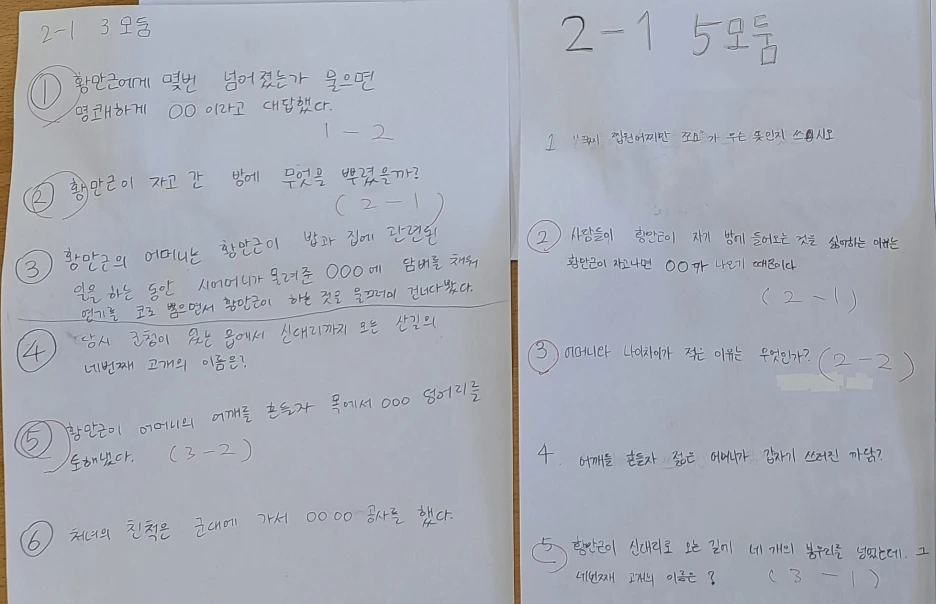 2-1 3모둠
① 황만근에게 몇번 넘어졌는가 물으면
명쾌하게 00이라고 대답했다.
1-2
② 황만근이 자고 간 방에 무엇을 뿌렸을까?
(2-1)
③ 황만근의 어머니는 황만근이 밥과 집에 관련된
일을 하는 동안 시어머니가 물려준 000에 담배를 채워
연기를 코로 뿜으면서 황만근이 하는 것을 물끄러미 건너다봤다.
④ 당시 군청이 있는 읍에서 신대리까지 오는 산길의
네번째 고개의 이름은?
⑤ 황만근이 어머니의 어깨를 흔들자 목에서 000 덩어리를
토해냈다. (3-2)
⑥ 처녀의 친척은 군대에 가서 0000 공사를 했다.
2-1 5모둠
1 가 무슨 뜻인지 쓰시오
② 사람들이 황만근이 자기 방에 들어오는 것을 싫어하는 이유는
황만근이 자고나면 00가 나오기 때문이다
(2-1)
③ 어머니와 나이차이가 적은 이유는 무엇인가? (2-2)
4. 어깨를 흔들자 젊은 어머니가 갑자기 쓰러진 까닭?
⑤ 황만근이 신대리로 오는 길에 네 개의 봉우리를 넘었는데. 그
네번째 고개의 이름은? (3-1)